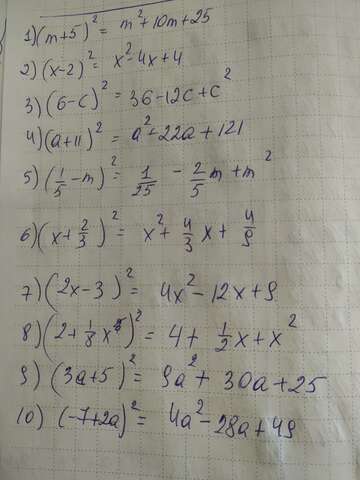 1) (m+5)² = m²+10m+25
2) (x-2)² = x²-4x+4
3) (6-c)² = 36-12c+c²
4) (a+11)² = a²+22a+121
5) (1/5-m)² = 1/25 - 2/5m+m²
6) (x+2/3)² = x²+4/3x+4/9
7) (2x-3)² = 4x²-12x+9
8) (2+1/8x)² = 4+1/2x+x²
9) (3a+5)² = 9a²+30a+25
10) (-7+2a)² = 4a²-28a+49